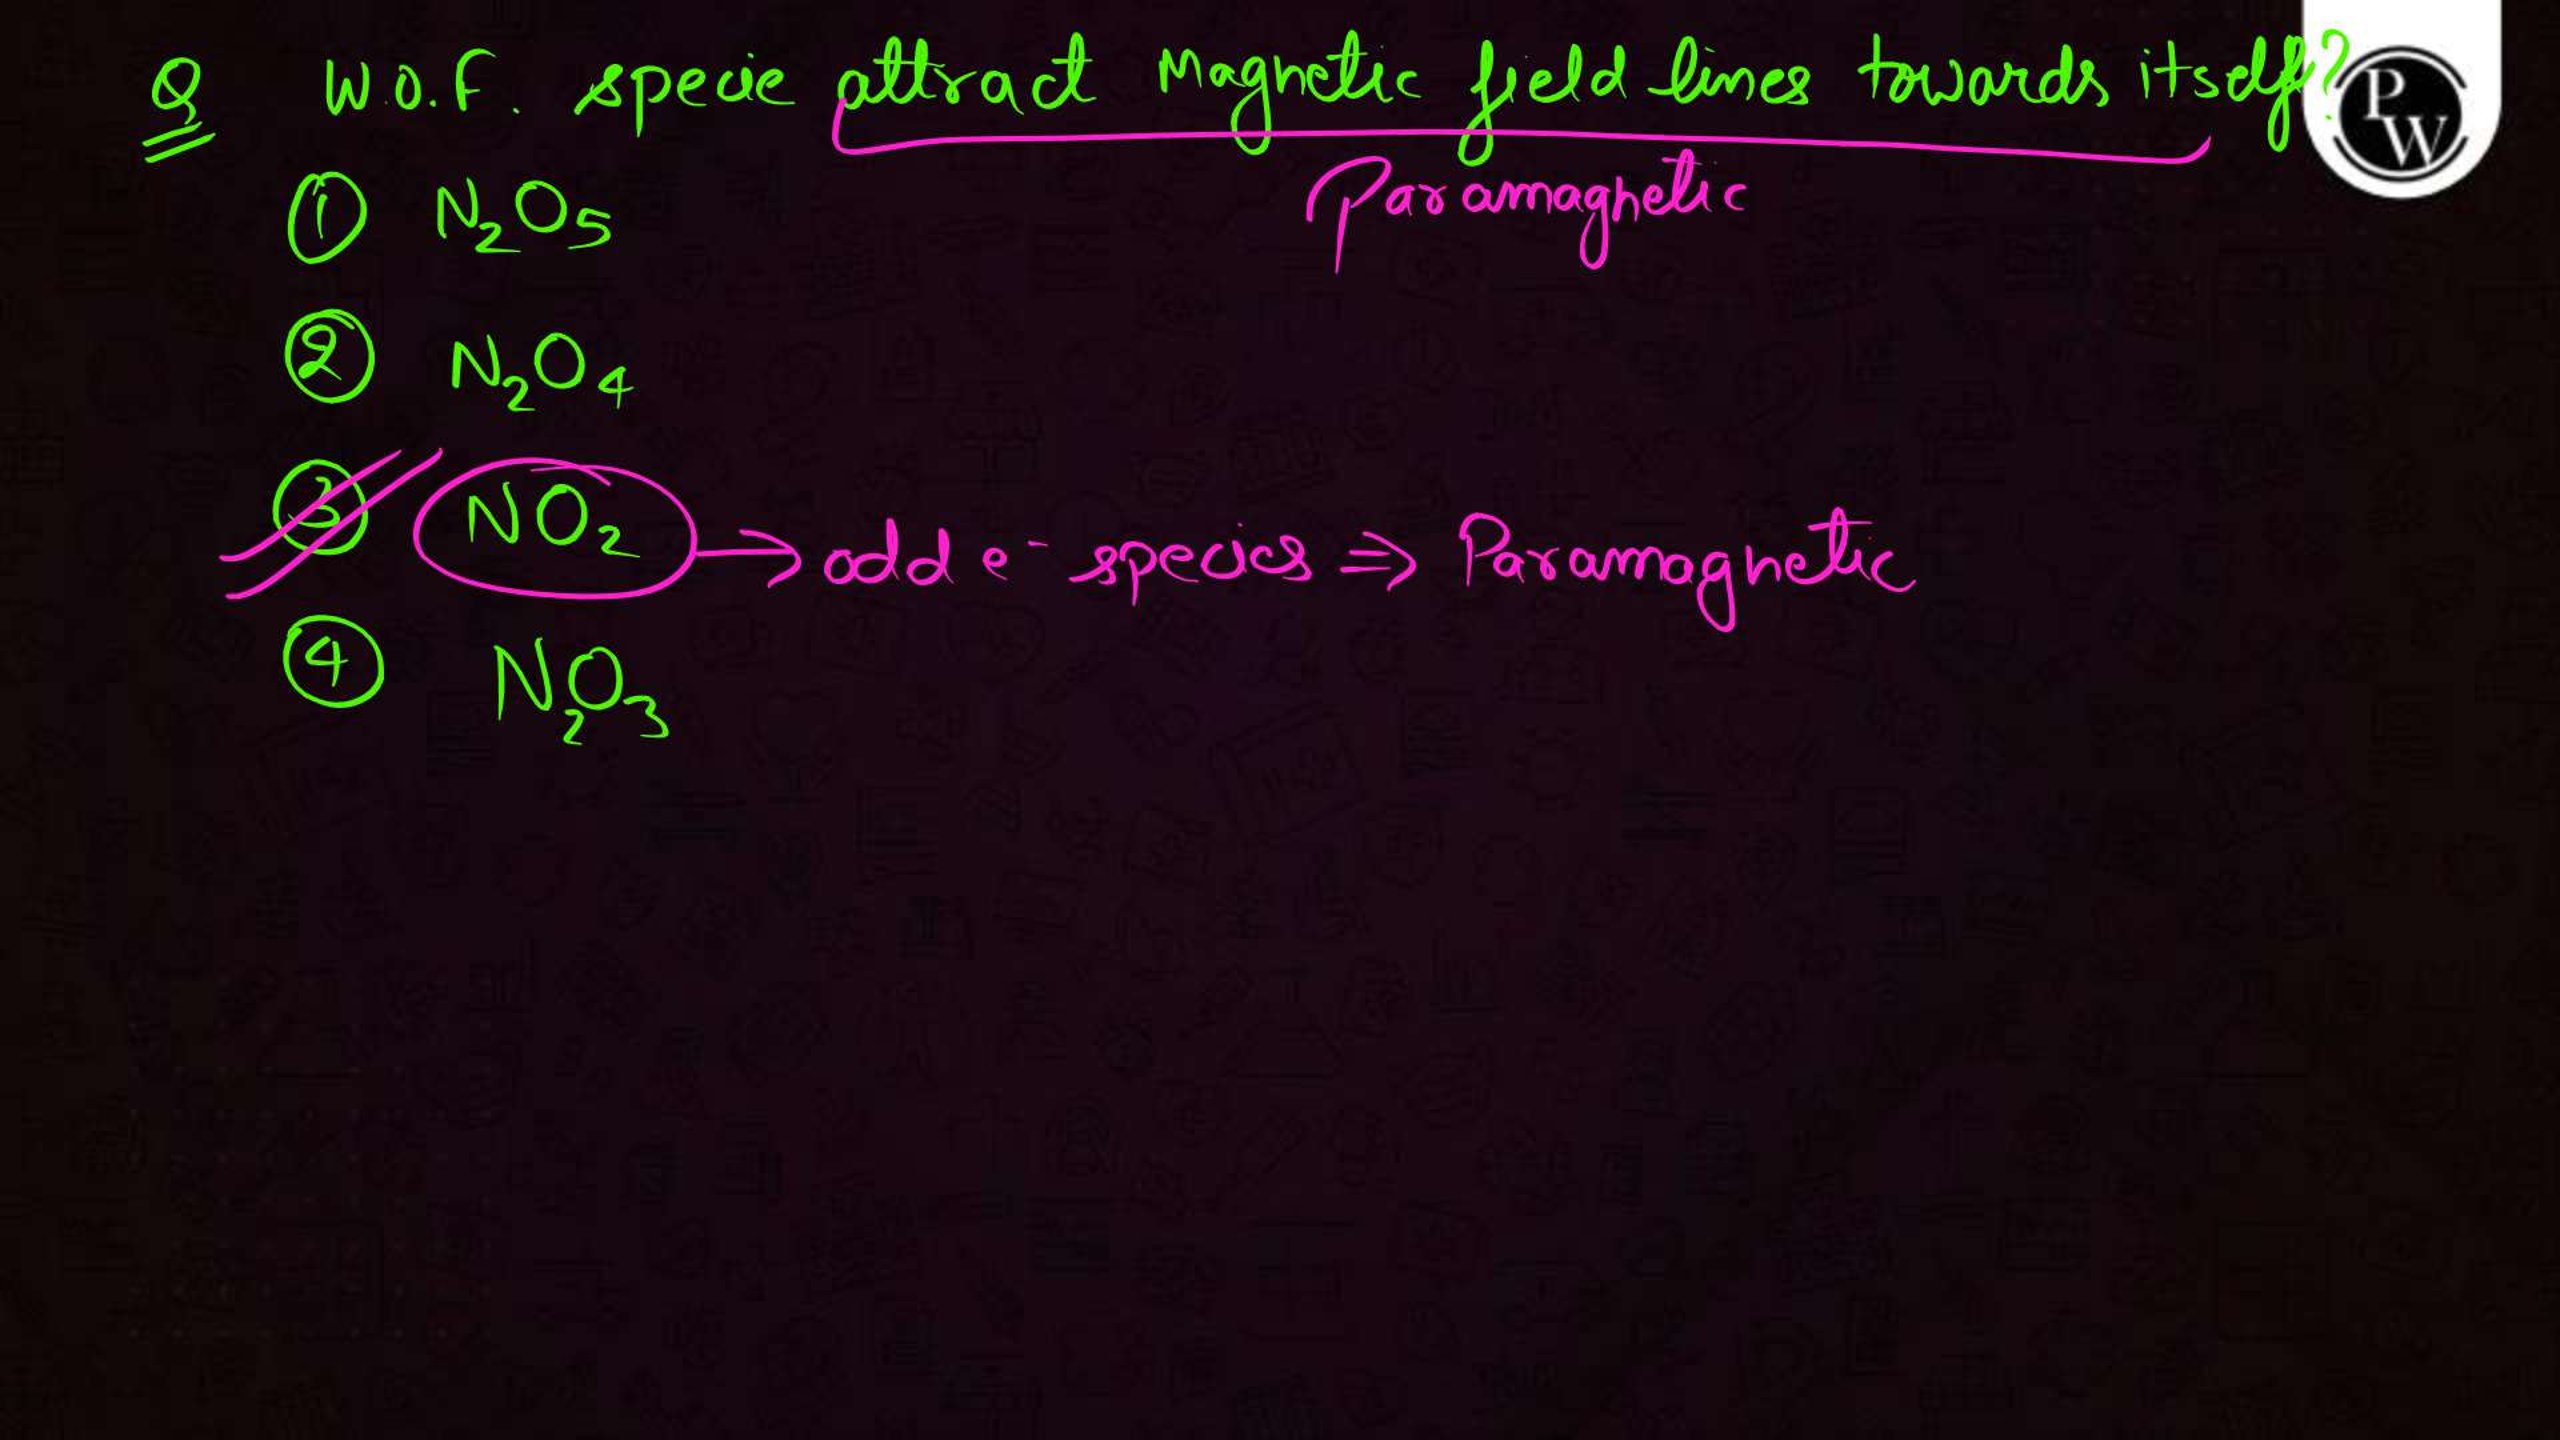 Q W.O.F. specie attract Magnetic field lines towards itself?
PW
Paramagnetic
① N₂O₅
② N₂O₄
③ NO₂ → odd e⁻ species ⇒ Paramagnetic
④ N₂O₃